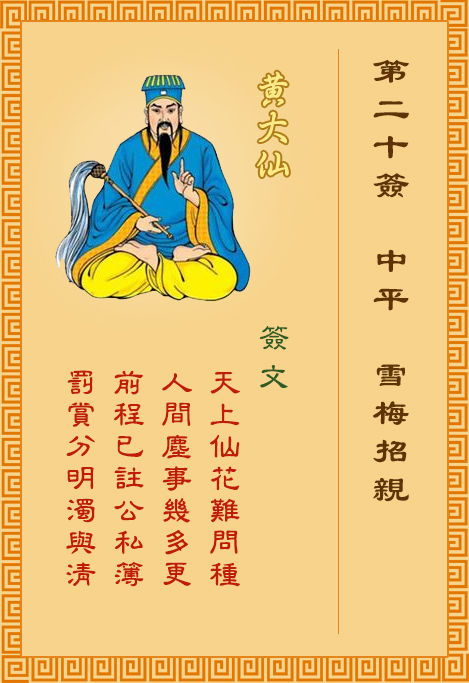 第二十簽 中平 雪梅招親
黃大仙
簽文
天上仙花難問種
人間塵事幾多更
前程已註公私簿
罰賞分明濁與清